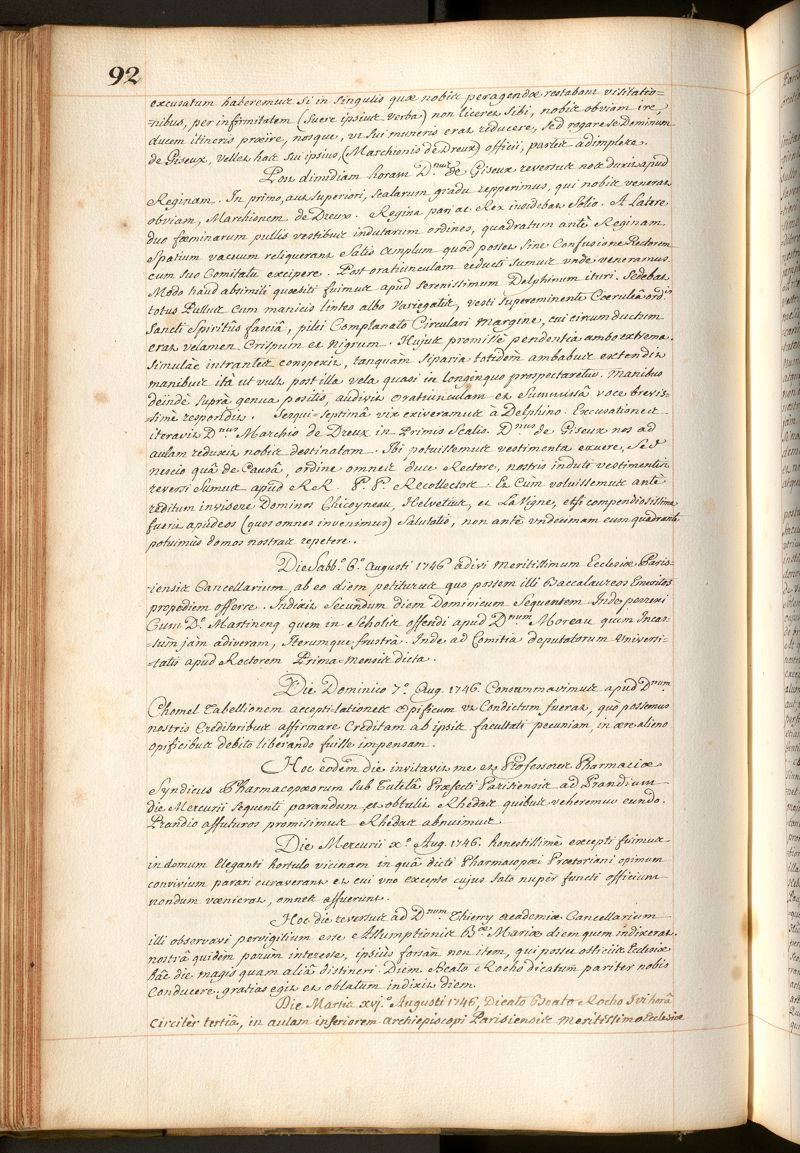 92
excusatum haberemus si in singulis quæ nobis peragendæ restabant visitatio=
=nibus, per infirmitatem (fuere ipsius verba) non liceret sibi, nobis obviam ire,
ducem itineris præire, nosque, ut sui muneris erat reducere, sed rogare se Dominum
de Giseux, vellet has sui ipsius, (Marchionis de Dreux) officii, partes adimplere.
Post dimidiam horam D.nus de Giseux reversus nos duxit apud
Reginam. In primo, aut superiori, scalarum gradu repperimus, qui nobis venerat
obviam, Marchionem de Dreux. Regina pari ac Rex insidebat solio. A Latere
duo fœminarum pullis vestibus indutarum ordines, quadratum antè Reginam
Spatium vacuum reliquerant Satis amplum quod posset sine Confusione Rectorem
cum suo Comitatu excipere. Post oratiunculam reducti sumus unde veneramus.
Modo haud absimili quæsiti fuimus apud serenissimum Delphinum ituri. Sedebat
totus Pullus Cum manicis linteo albo variegatis, vesti supereminente Cœruleâ ord.is
Sancti Spiritûs fasciâ, pilei Complanato Circulari margine, cui circumductum
erat velamen Crispum et nigrum. Hujus promissè pendentia ambo extrema.
Simulàc intrantes conspexit, tanquam siparia totidem ambabus extendit
manibus ità ut vult post illa vela quasi in longinquo prospectaretur. Manibus
deindè suprà genua positis, audivit oratiunculam et summissâ voce brevis=
=simè respondit. Sesqui-Septimâ vix exiveramus à Delphino. Excusationes
iteravit D.nus Marchio de Dreux in Primis Scalis. D.nus de Giseux nos ad
aulam reduxit nobis destinatam. Ibi potuissemus vestimenta exuere, Sed
nescio quâ de Causâ, ordine omnes duce Rectore, nostris induti vestimentis
reversi Sumus apud RR. P.P. Recollectos. Et Cum voluissemus ante
reditum invisere Dominos Chicoyneau, Helvetius, et La Vigne, etsi compendiosissima
fuerit apud eos (quos omnes invenimus) Salutatio, non antè undecimam cum quadrante
potuimus domos nostras repetere.
Die Sabb.o 6.o Augusti 1746 adivi meritissimum Ecclesiæ Paris=
=iensis Cancellarium, ab eo diem petiturus quo possem illi Baccalaureos Emeritos
propediem offerre. Indixit Secundum diem Dominicum Sequentem. Inde perrexi
Cum D.o Martinenq quem in Scholis offendi apud D.num Moreau quem Incas=
=sùm jàm adiveram, Iterumque frustrà. Inde ad Comitia deputatorum Universi=
=tatis apud Rectorem Prima-mensis dicta.
Die Dominico 7.o Aug. 1746. Consummavimus apud D.num
Chomel Tabellionem acceptilationes Opificum ut Condictum fuerat, quò possemus
nostris Creditoribus affirmare Creditam ab ipsis facultati pecuniam, in ære alieno
opificibus debito liberando fuisse impensam.
Hoc eodem die invitavit me et Professores Pharmaciæ
Syndicus Pharmacopæorum sub Tutelâ Præfecti Parisiensis ad Prandium
die Mercurii Sequenti parandum, et obtulit Rhedas quibus veheremur eundo.
Prandio affuturos promisimus Rhedas abnuimus.
Die Mercurii x.o Aug. 1746. honestissimè excepti fuimus
in domum eleganti hortulo vicinam in quâ dicti Pharmacopæi Prætoriani opimum
convivium parari curaverant et cui uno excepto cujus fato nupèr functi officium
nondum vænierat, omnes affuerunt.
Hoc die reversus ad D.num Thierry academiæ Cancellarium
illi observavi pervigilium esse Assumptionis B.æ Mariæ diem quem indixerat.
nostrâ quidem parùm interesse, ipsius forsàn non item, qui posset officiis Ecclesiæ
hâc die magis quam aliâ distineri. Diem Beato Rocho dicatum pariter nobis
Conducere. gratias egit et oblatum indixit diem.
Die Martis xvj.o Augusti 1746, Dicato Beato Rocho Ivi horâ
Circitèr tertiâ, in aulam inferiorem archiepiscopi Parisiensis meritissimo Ecclesiæ